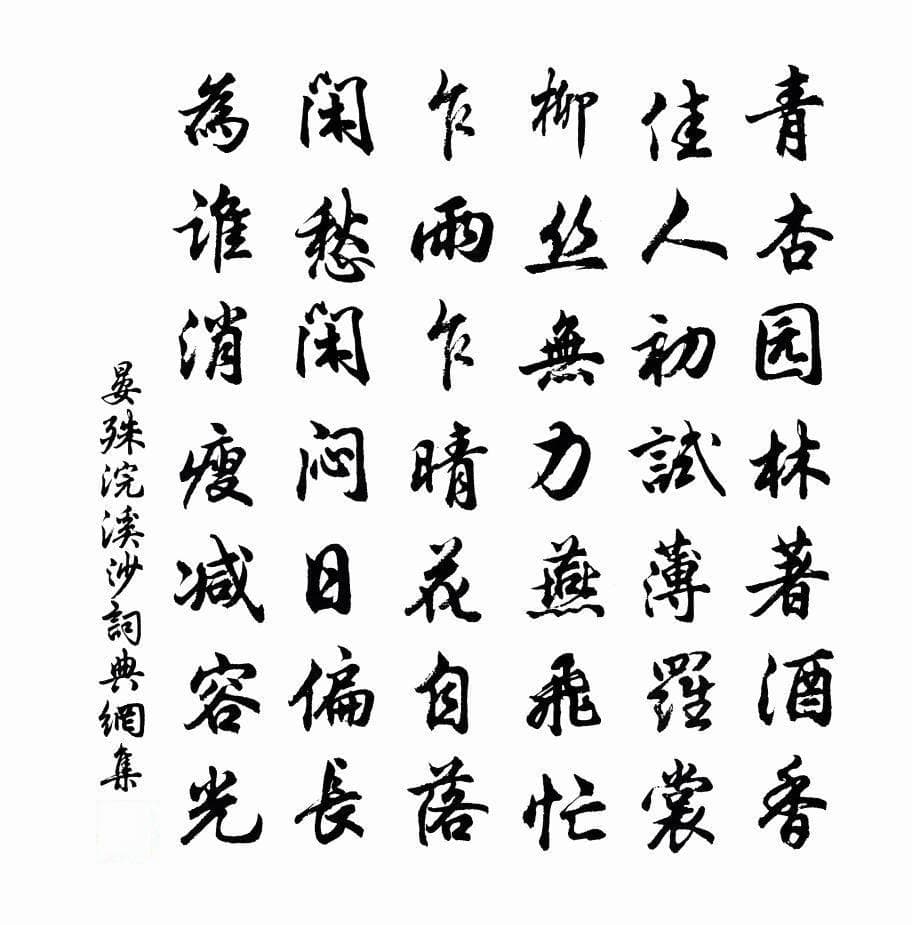 青杏园林著酒香
佳人初試薄羅裳
柳丝無力燕飛忙
乍雨乍晴花自落
闲愁闲闷日偏長
為誰消瘦减容光
晏殊浣溪沙詞典網集